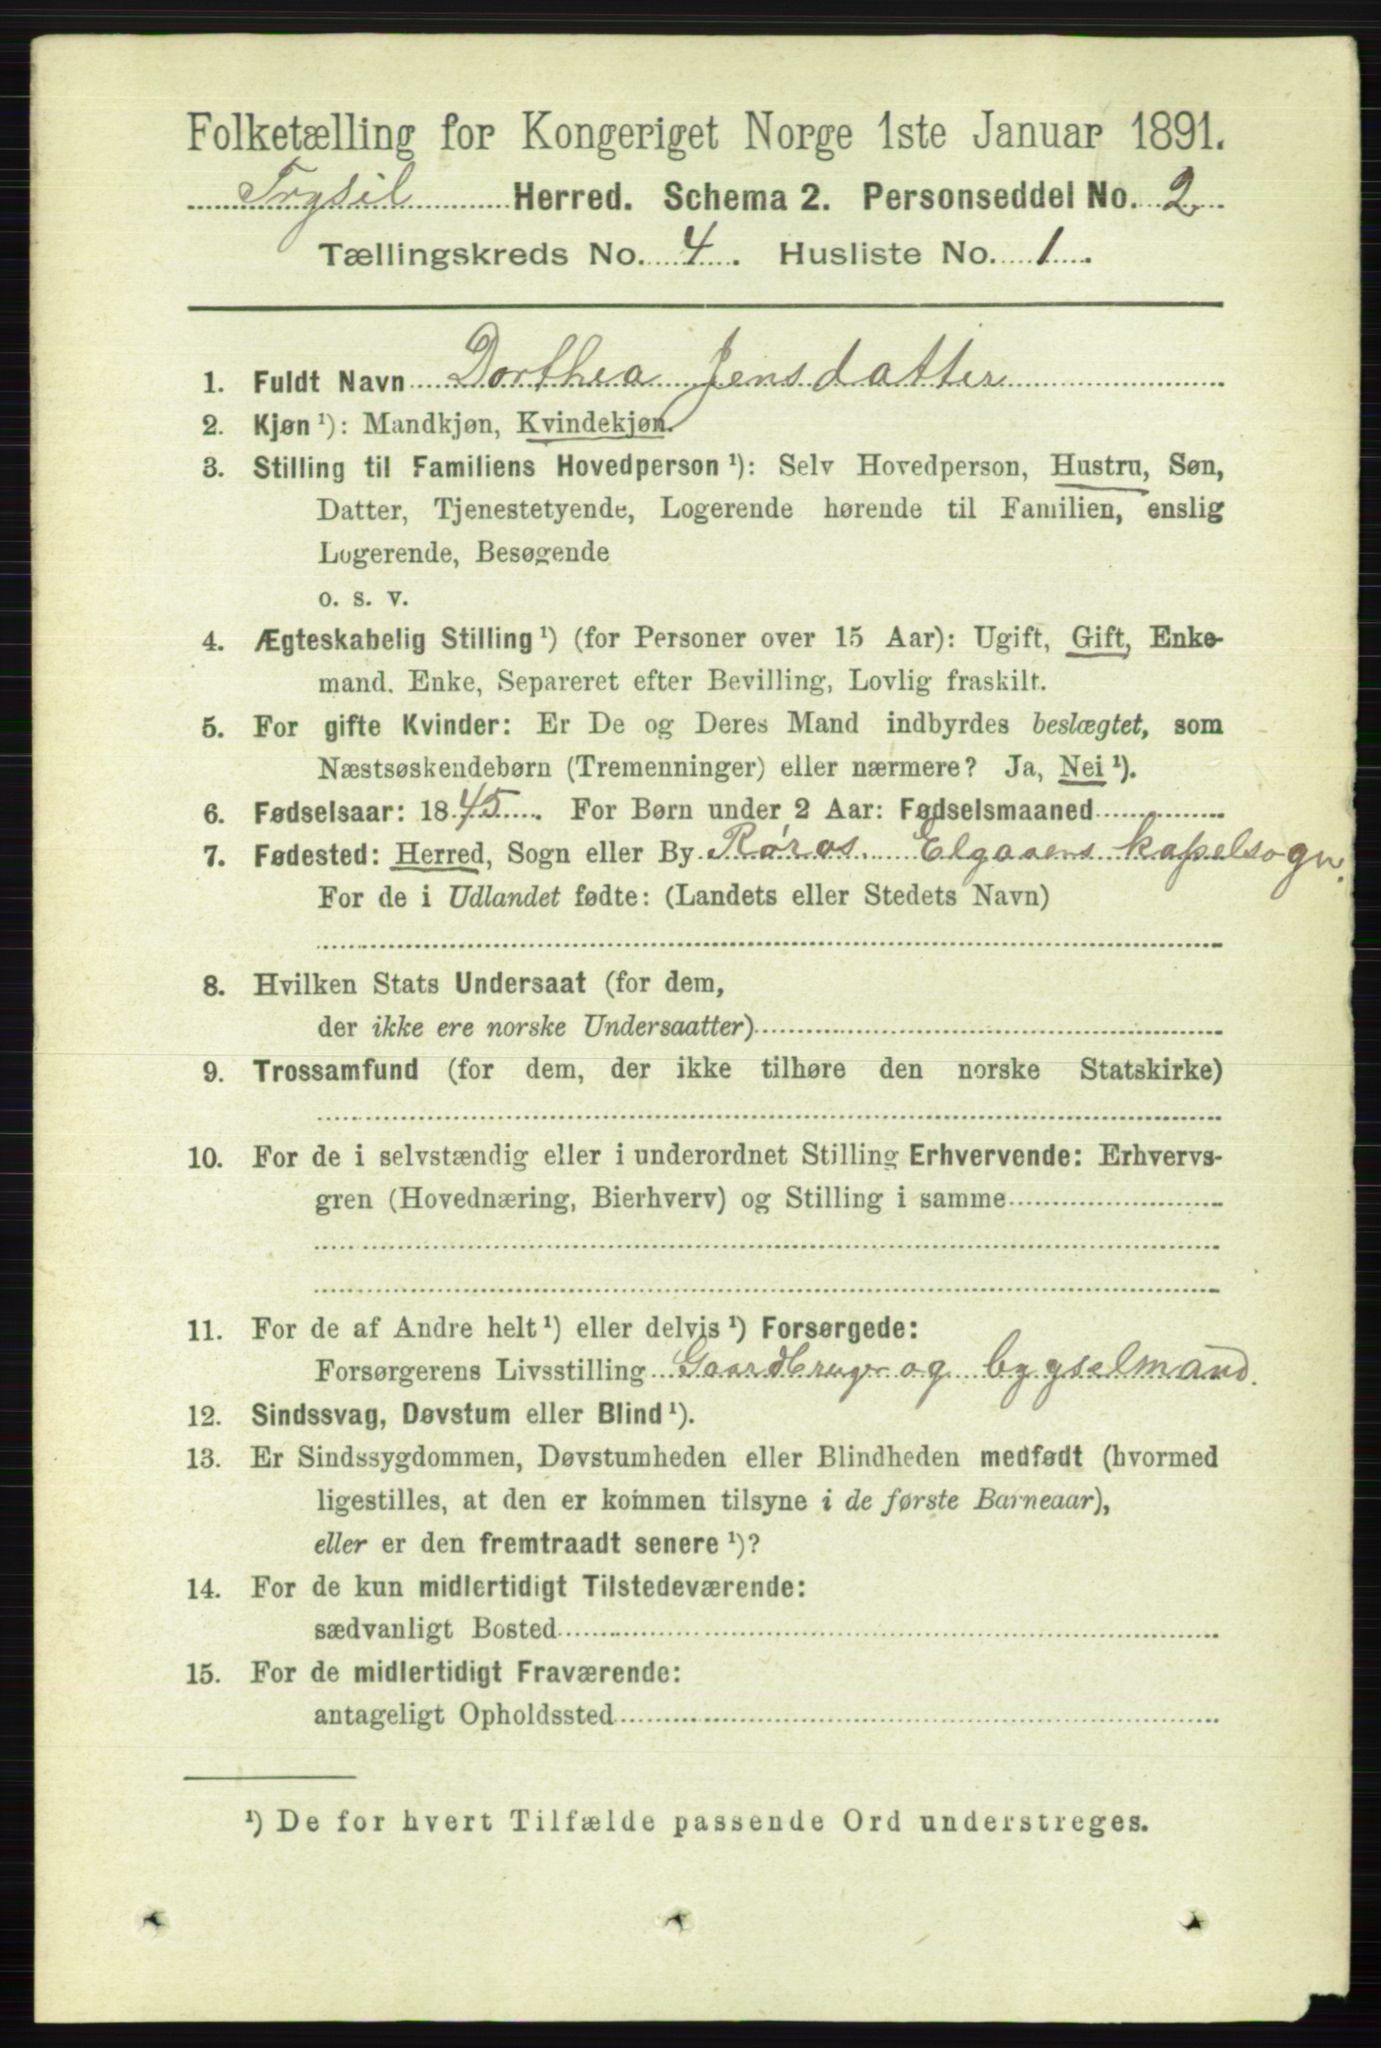 Folketælling for Kongeriget Norge 1ste Januar 1891.
Trysil Herred. Schema 2. Personseddel No. 2
Tællingskreds No. 4. Husliste No. 1.
1. Fuldt Navn Dorthea Jensdatter
2. Kjøn ¹): Mandkjøn, Kvindekjøn.
3. Stilling til Familiens Hovedperson ¹): Selv Hovedperson, Hustru, Søn,
Datter, Tjenestetyende, Logerende hørende til Familien, enslig
Logerende, Besøgende
o. s. v.
4. Ægteskabelig Stilling ¹) (for Personer over 15 Aar): Ugift, Gift, Enke-
mand. Enke, Separeret efter Bevilling, Lovlig fraskilt.
5. For gifte Kvinder: Er De og Deres Mand indbyrdes beslægtet, som
Næstsøskendebørn (Tremenninger) eller nærmere? Ja, Nei ¹).
6. Fødselsaar: 1845. For Børn under 2 Aar: Fødselsmaaned
7. Fødested: Herred, Sogn eller By Røros. Elgaaens kapelsogn.
For de i Udlandet fødte: (Landets eller Stedets Navn)
8. Hvilken Stats Undersaat (for dem,
der ikke ere norske Undersaatter)
9. Trossamfund (for dem, der ikke tilhøre den norske Statskirke)
10. For de i selvstændig eller i underordnet Stilling Erhvervende: Erhvervs-
gren (Hovednæring, Bierhverv) og Stilling i samme
11. For de af Andre helt ¹) eller delvis ¹) Forsørgede:
Forsørgerens Livsstilling Gaardbruger og bygselmand.
12. Sindssvag, Døvstum eller Blind ¹).
13. Er Sindssygdommen, Døvstumheden eller Blindheden medfødt (hvormed
ligestilles, at den er kommen tilsyne i de første Barneaar),
eller er den fremtraadt senere ¹)?
14. For de kun midlertidigt Tilstedeværende:
sædvanligt Bosted
15. For de midlertidigt Fraværende:
antageligt Opholdssted
¹) De for hvert Tilfælde passende Ord understreges.